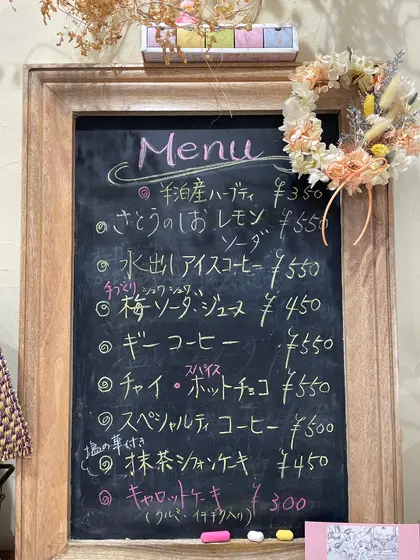 Menu
半泊産ハーブティ ¥350
さとうのしお レモン ¥550
ソーダ
水出しアイスコーヒー ¥550
手づくり シュワシュワ
梅ソーダ・ジュース ¥450
ギーコーヒー ¥550
スパイス
チャイ・ホットチョコ ¥550
スペシャルティコーヒー ¥500
塩の華付き
抹茶シフォンケーキ ¥450
キャロットケーキ ¥300
(クルミ・イチヂク入り)